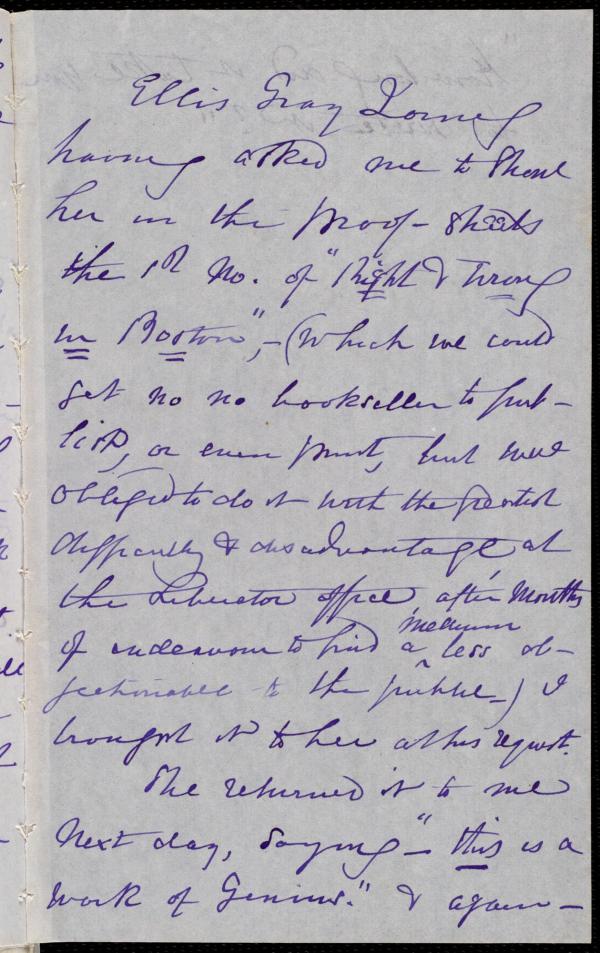 Ellis Gray Loring
having asked me to show
her in the proof-sheets
the 1st No. of "Right & Wrong
in Boston", - (which we could
get no no bookseller to pub-
lish, or even print, but were
obliged to do it with the greatest
difficulty & disadvantage at
the Liberator office after months
of endeavour to find a medium less ob-
jectionable to the public -) I
brought it to her at his request.
She returned it to me
next day, saying - "this is a
work of Genius." & again -